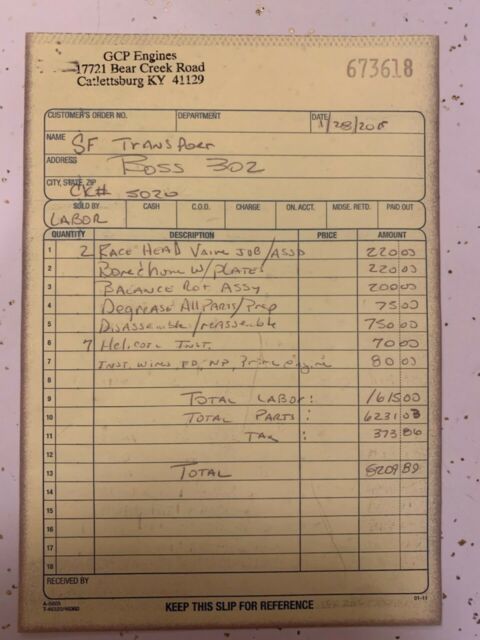 GCP Engines
17721 Bear Creek Road
Catlettsburg KY 41129
673618
CUSTOMER'S ORDER NO. DEPARTMENT DATE 1/28/20
NAME SF Transport
ADDRESS Boss 302
CITY, STATE, ZIP CK# 5020
SOLD BY CASH C.O.D. CHARGE ON. ACCT. MDSE. RETD. PAID OUT
LABOR
QUANTITY DESCRIPTION PRICE AMOUNT
1 2 Race Head Valve Job/Assm 220 00
2 Bore & hone w/ plates 220 00
3 Balance Rot Assy 200 00
4 Degrease All Parts/Prep 75 00
5 Disassemble/reassemble 750 00
6 7 Helicoil Inst. 70 00
7 Inst. engine 80 00
8
9 Total Labor: 1615 00
10 Total Parts: 6231 03
11 Tax: 373 86
12
13 Total 8209 89
14
15
16
17
18
RECEIVED BY
A-5805
T-46320/46360
KEEP THIS SLIP FOR REFERENCE
01-11